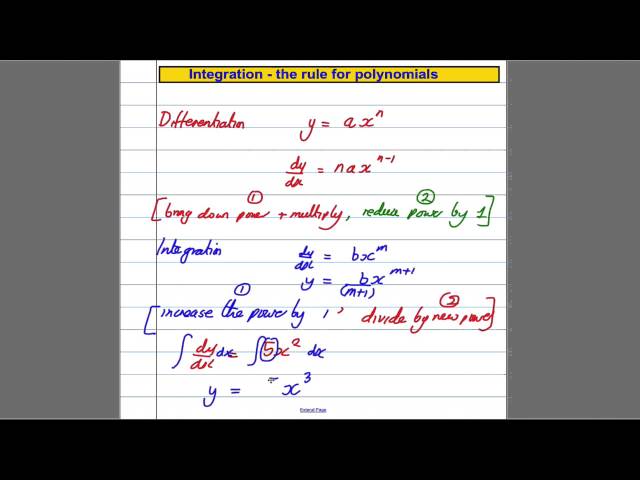 Integration - the rule for polynomials
Differentiation y = ax^n
dy/dx = nax^(n-1)
① ②
[bring down power + multiply, reduce power by 1]
Integration dy/dx = bx^m
y = bx^(m+1)/(m+1)
① ②
[increase the power by 1, divide by new power]
∫ dy/dx dx = ∫ 5x² dx
y = x³
Extend Page